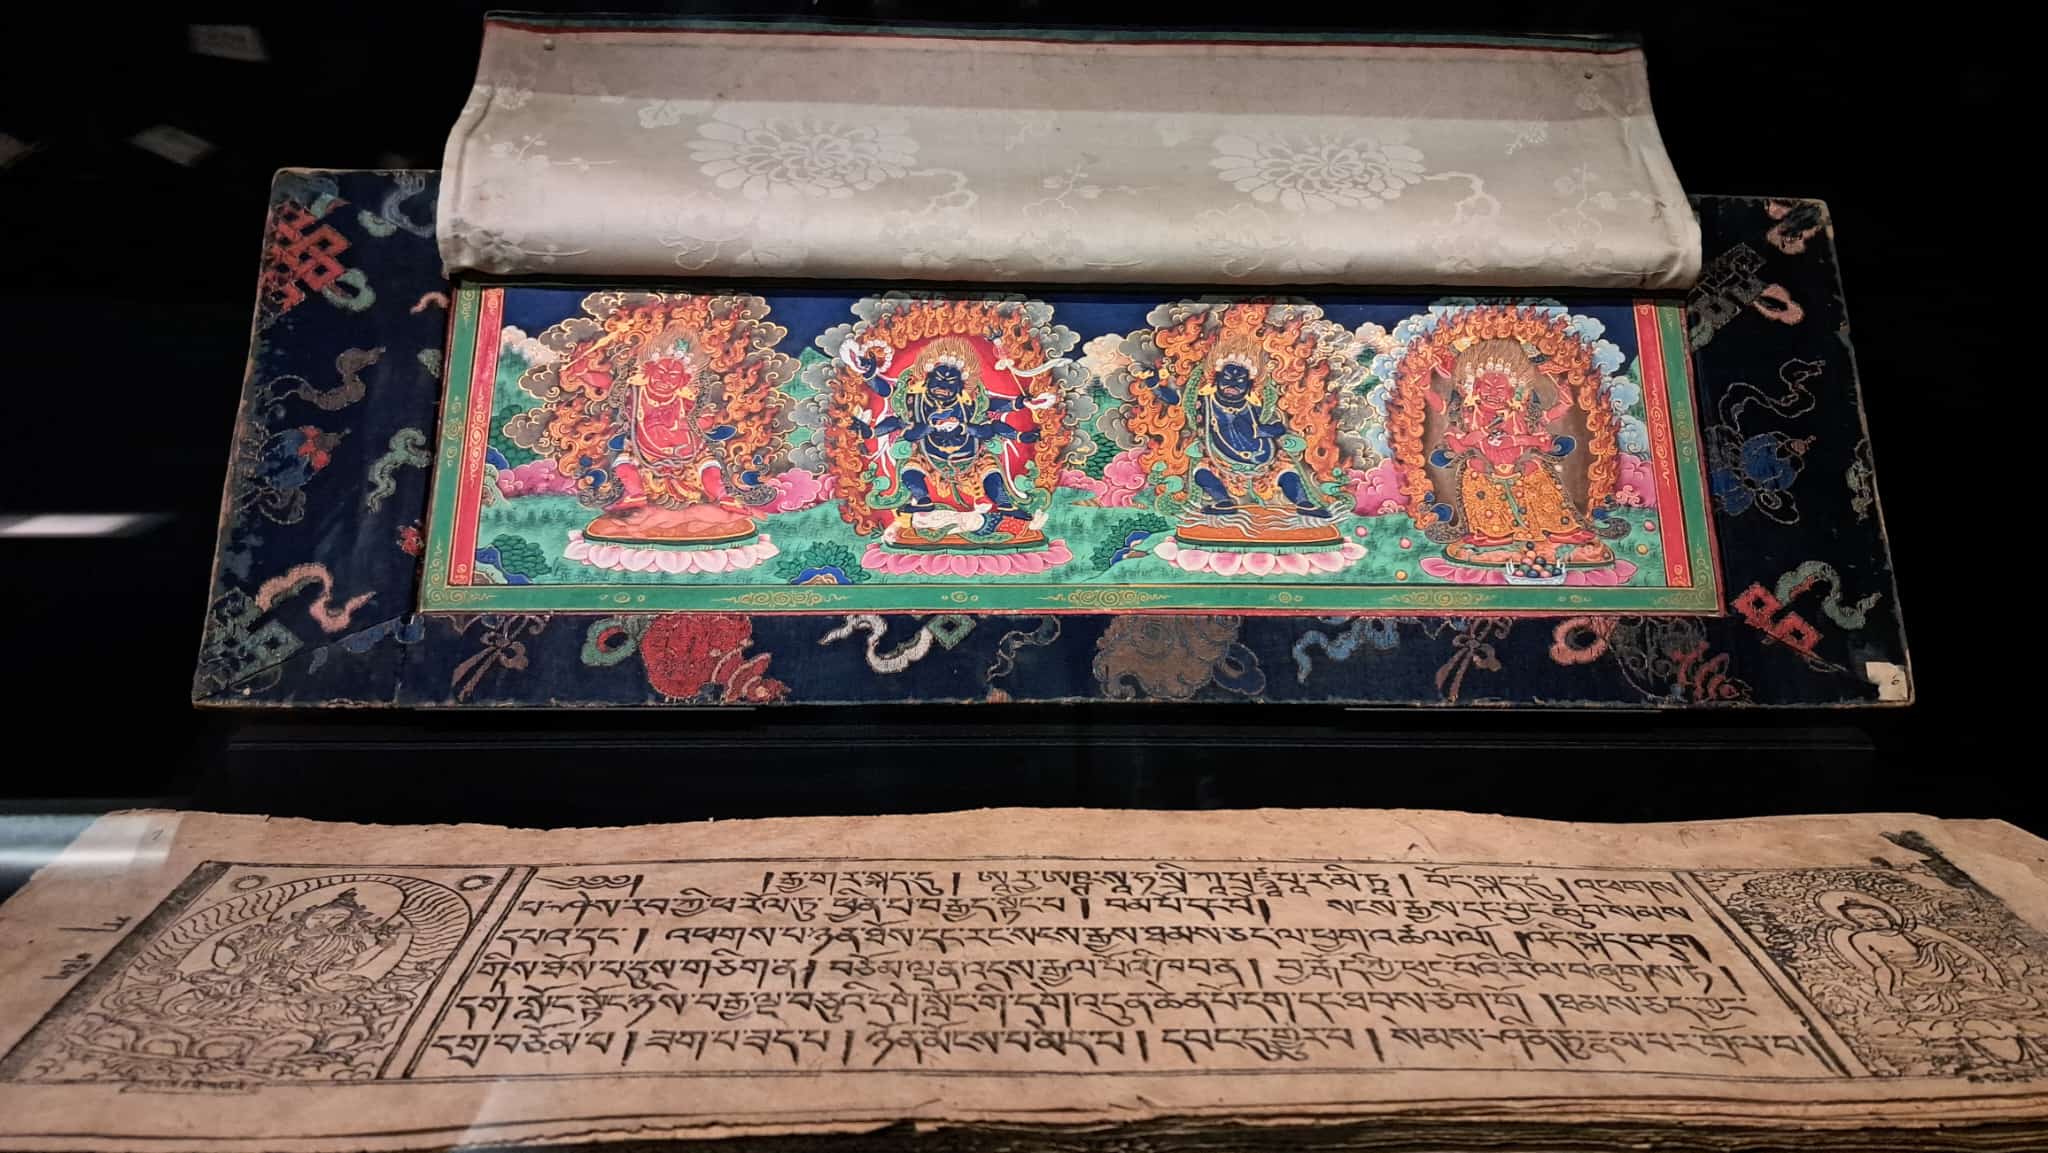 6
༄༅༅། །རྒྱ་གར་སྐད་དུ། ཨཱརྱ་ཨཥྚ་སཱ་ཧ་སྲི་ཀཱ་པྲཛྙཱ་པཱ་ར་མི་ཏཱ། བོད་སྐད་དུ། །འཕགས
པ་ཤེས་རབ་ཀྱི་ཕ་རོལ་ཏུ་ཕྱིན་པ་བརྒྱད་སྟོང་པ། བམ་པོ་དང་པོ། སངས་རྒྱས་དང་བྱང་ཆུབ་སེམས
དཔའ་དང་། འཕགས་པ་ཉན་ཐོས་དང་རང་སངས་རྒྱས་ཐམས་ཅད་ལ་ཕྱག་འཚལ་ལོ། །འདི་སྐད་བདག
གིས་ཐོས་པ་དུས་གཅིག་ན། བཅོམ་ལྡན་འདས་རྒྱལ་པོའི་ཁབ་ན། བྱ་རྒོད་ཀྱི་ཕུང་པོའི་རི་ལ་བཞུགས་ཏེ།
དགེ་སློང་སྟོང་ཉིས་བརྒྱ་ལྔ་བཅུའི་དགེ་སློང་གི་དགེ་འདུན་ཆེན་པོ་དག་དང་ཐབས་ཅིག་གོ །ཐམས་ཅད་ཀྱང་
དགྲ་བཅོམ་པ། ཟག་པ་ཟད་པ། ཉོན་མོངས་པ་མེད་པ། དབང་དུ་གྱུར་པ། སེམས་ཤིན་ཏུ་རྣམ་པར་གྲོལ་བ།